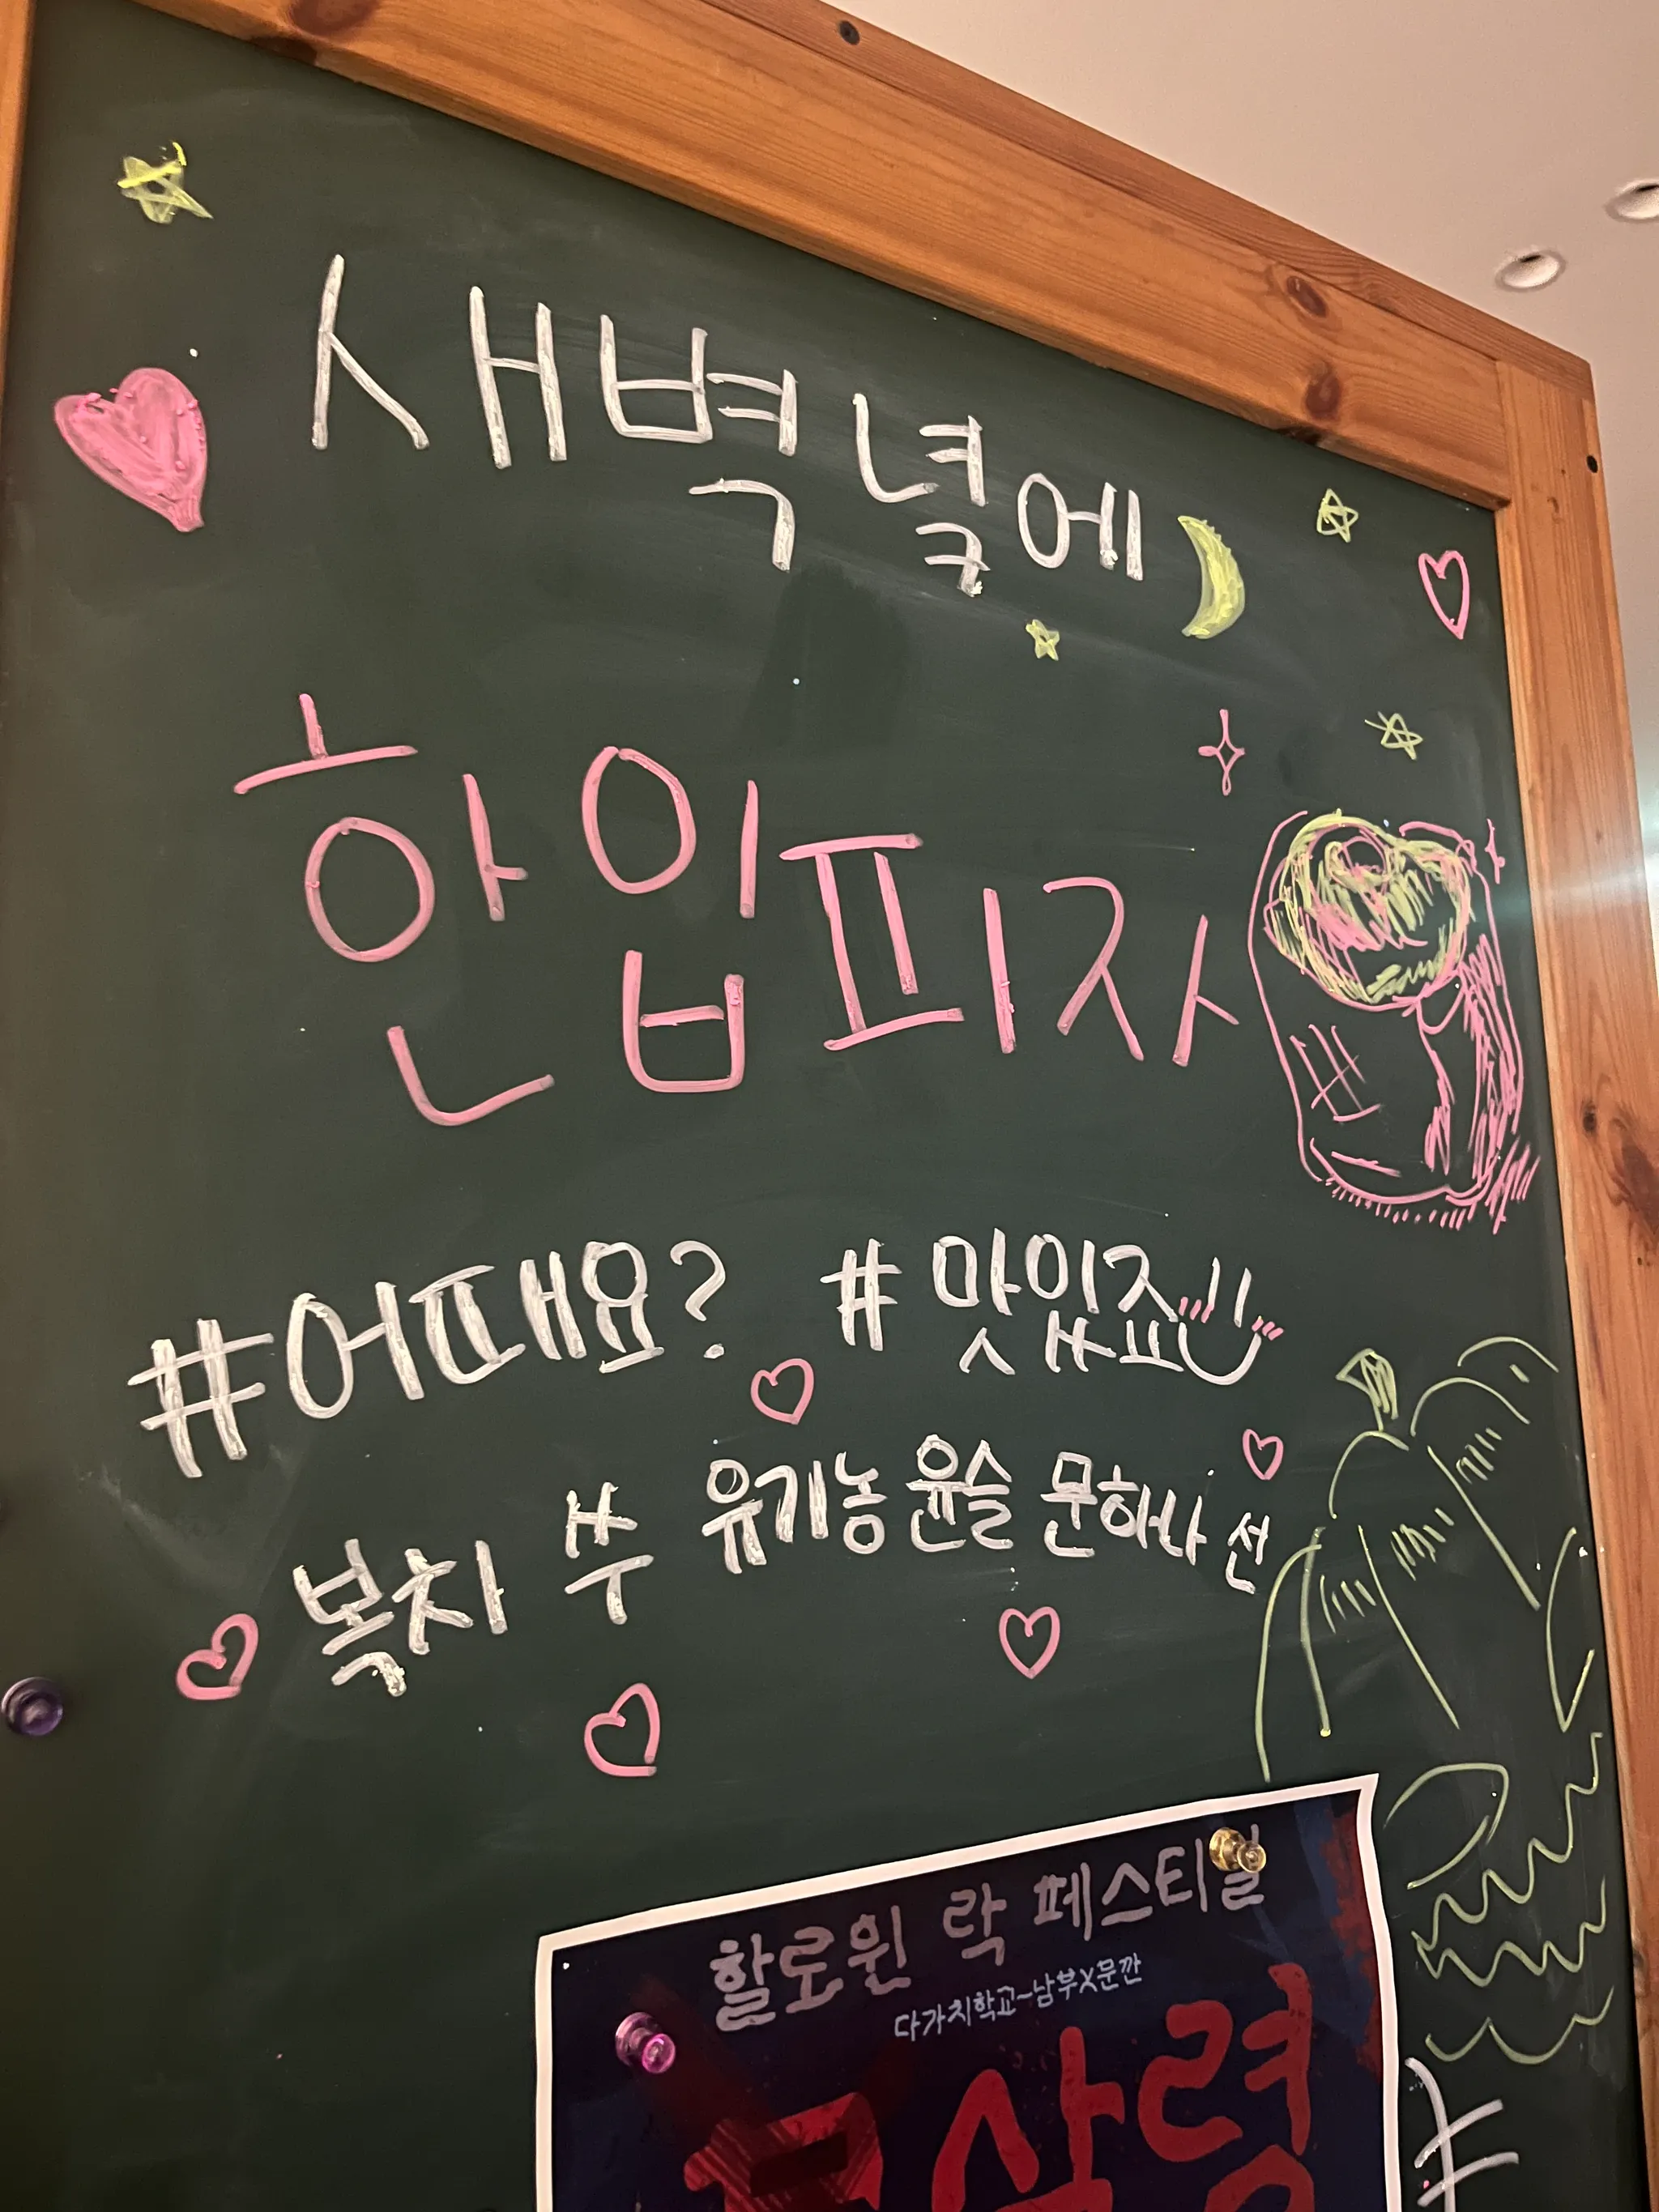 새벽녘에
한입피자
#어때요? #맛있죠
복차 쑤 유기농 윤슬 문하나 선
할로윈 락 페스티벌
다가치학교-남부X문깐